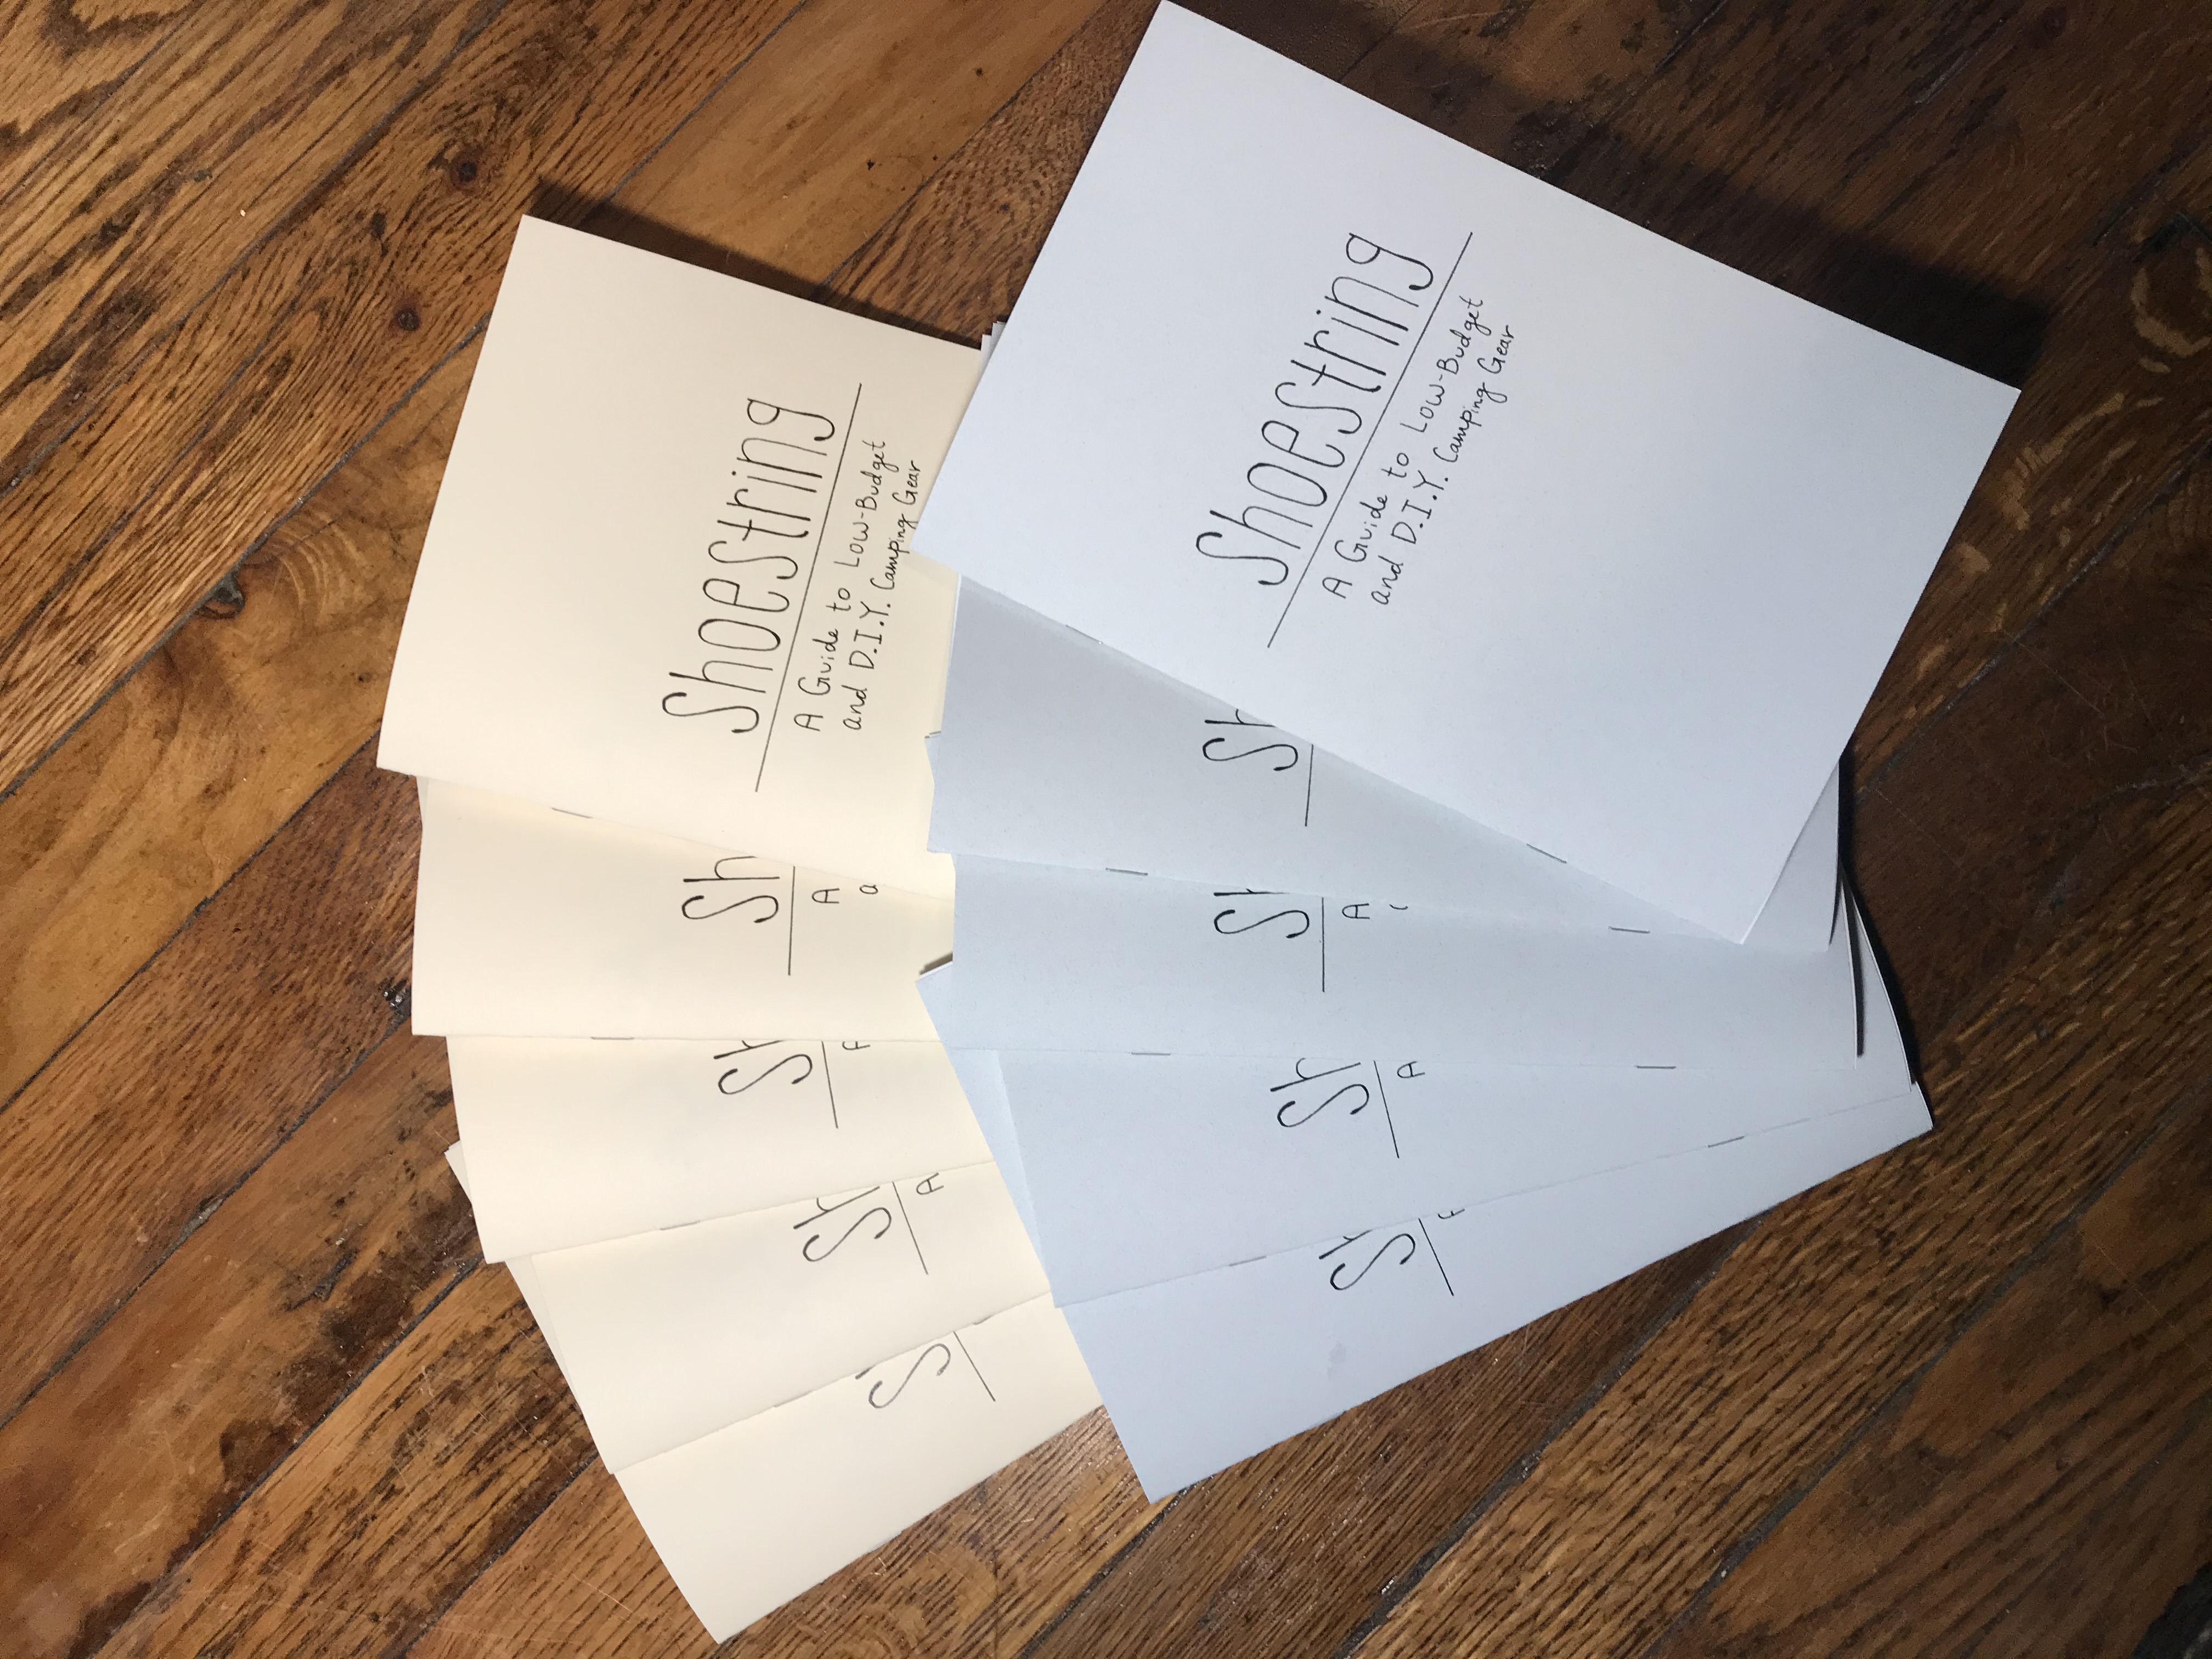 Sh
Sh
A
Sh
A
Sh
A
a
Shoestring
A Guide to Low-Budget
and D.I.Y. Camping Gear
Sh
Sh
A
Sh
A
Sh
Shoestring
A Guide to Low-Budget
and D.I.Y. Camping Gear